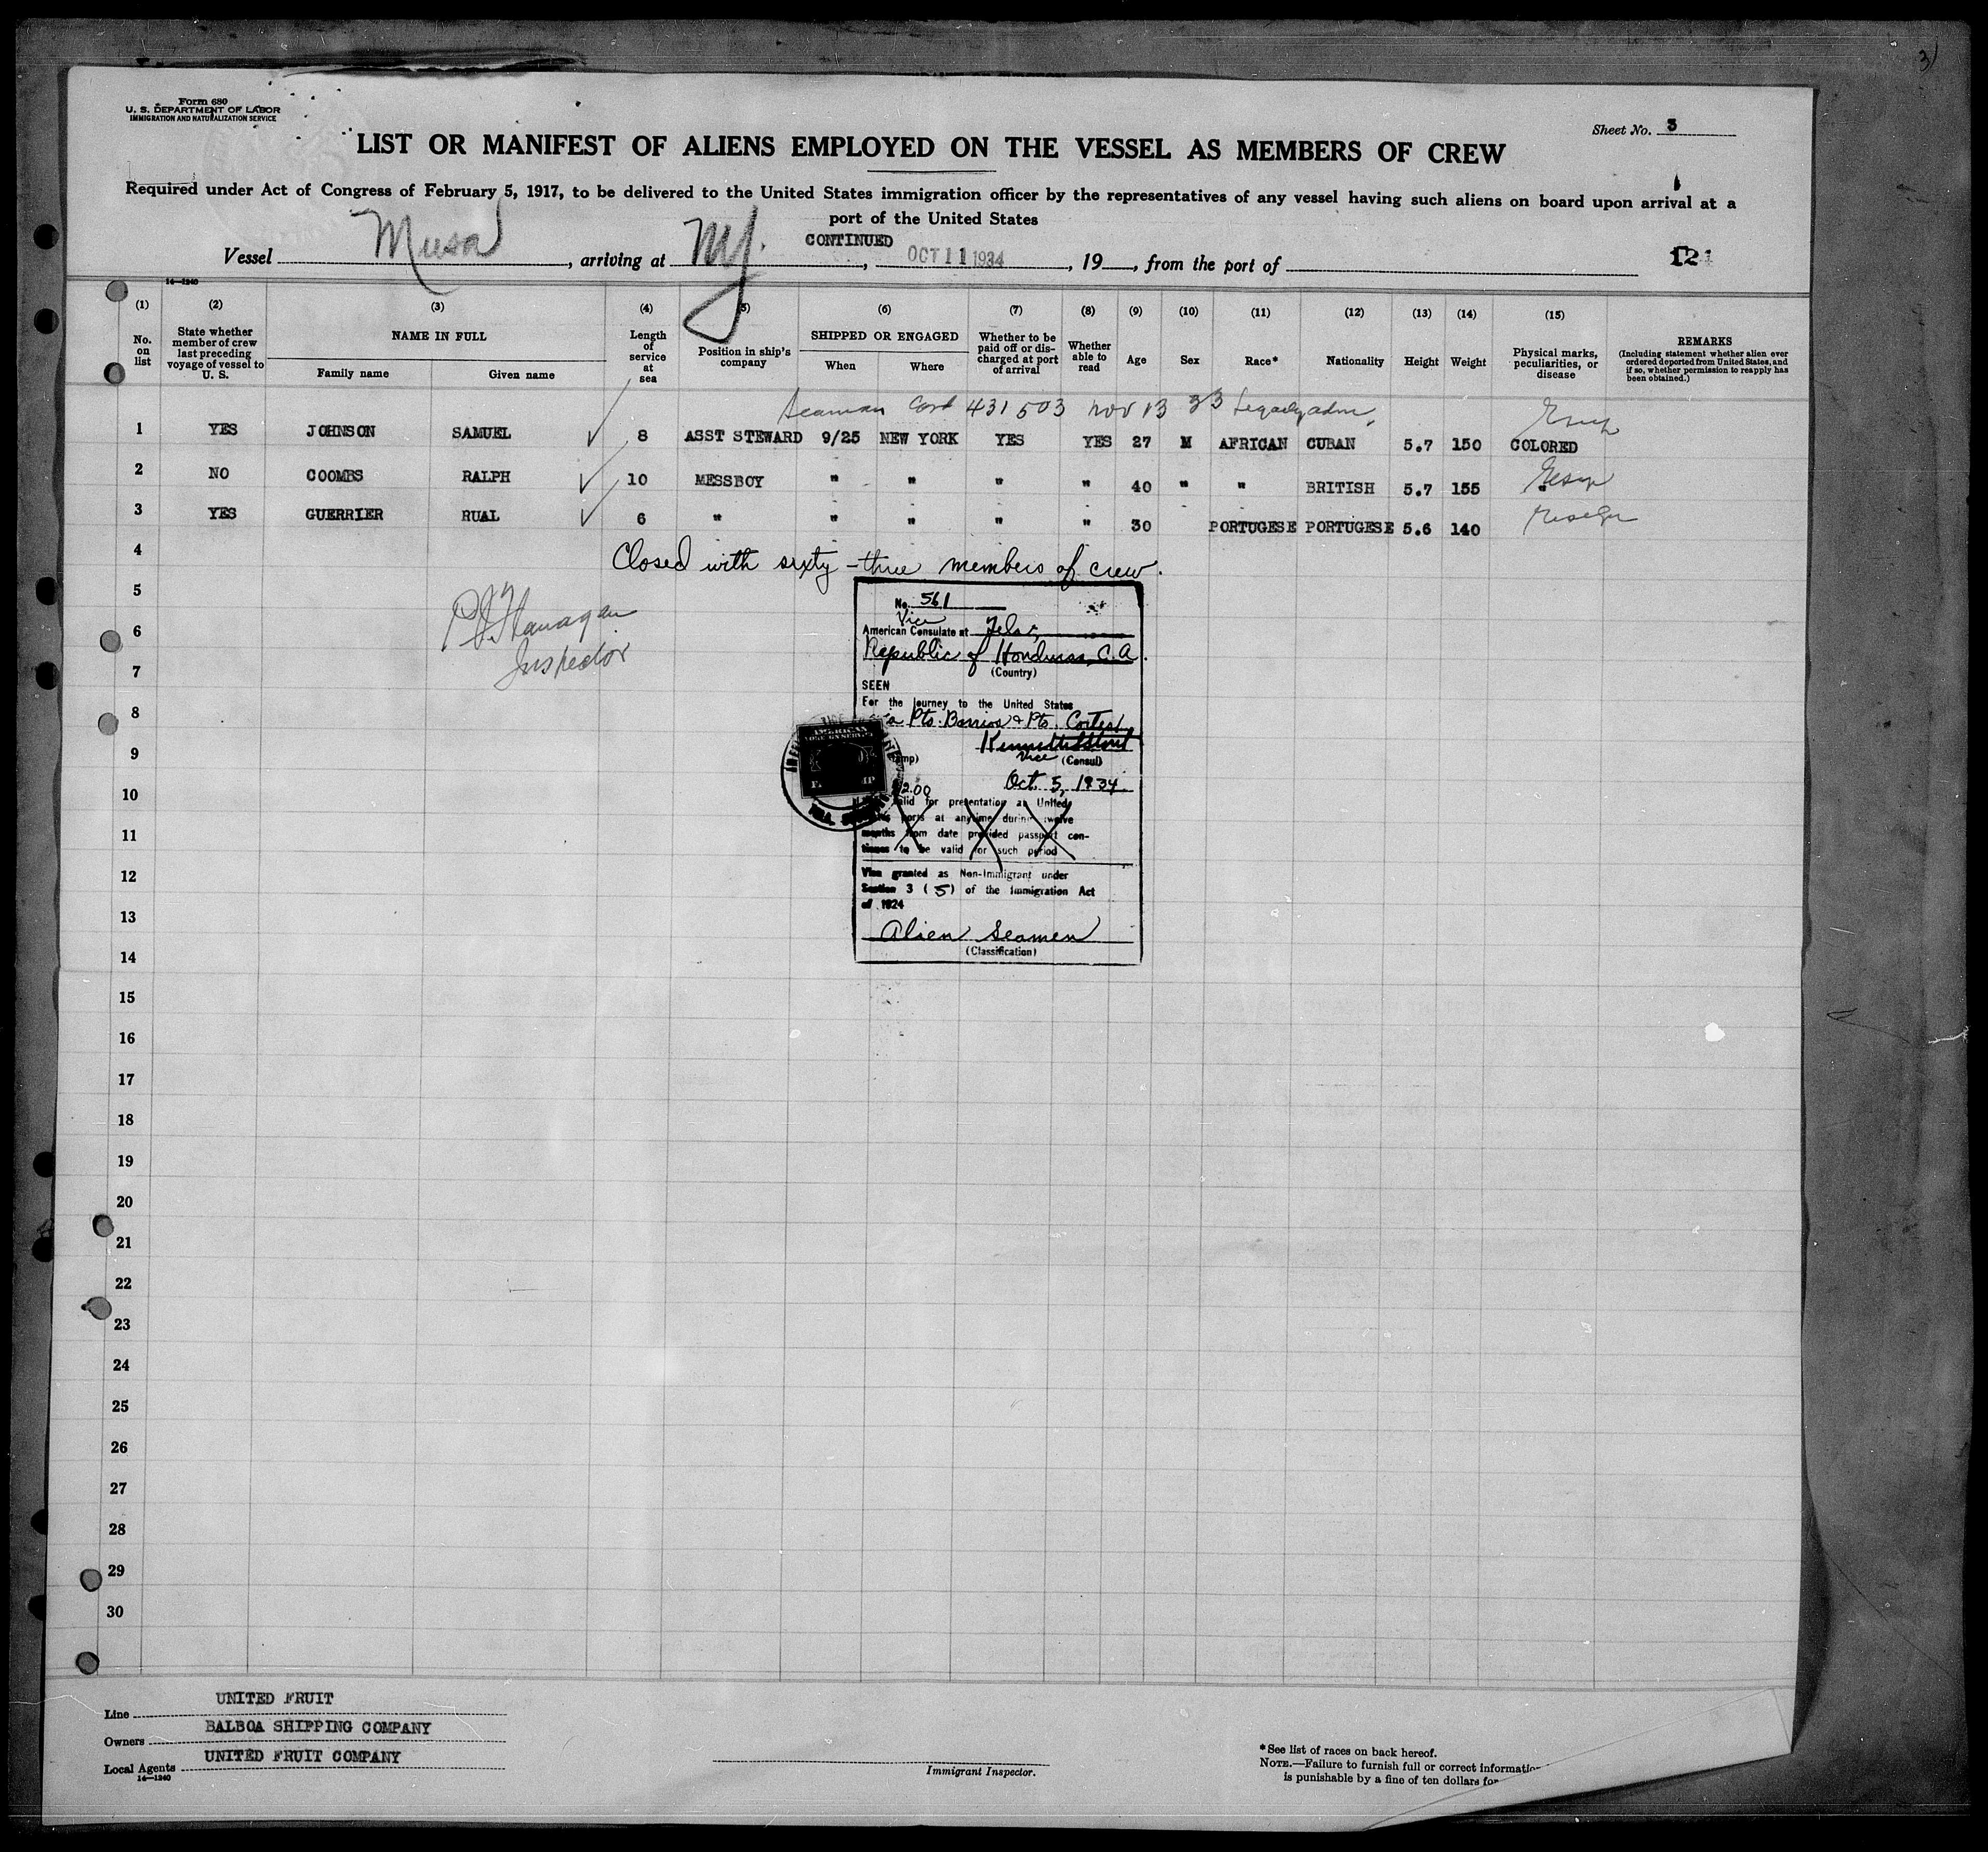 3
Form 680
U. S. DEPARTMENT OF LABOR
IMMIGRATION AND NATURALIZATION SERVICE
Sheet No. 3
LIST OR MANIFEST OF ALIENS EMPLOYED ON THE VESSEL AS MEMBERS OF CREW
Required under Act of Congress of February 5, 1917, to be delivered to the United States immigration officer by the representatives of any vessel having such aliens on board upon arrival at a
port of the United States
CONTINUED
Vessel Musa, arriving at NY., OCT 11 1934, 19, from the port of
14—1240
(1) (2) (3) (4) (5) (6) (7) (8) (9) (10) (11) (12) (13) (14) (15)
No. on list
State whether member of crew last preceding voyage of vessel to U. S.
NAME IN FULL
Family name Given name
Length of service at sea
Position in ship's company
SHIPPED OR ENGAGED
When Where
Whether to be paid off or discharged at port of arrival
Whether able to read
Age Sex Race* Nationality Height Weight
Physical marks, peculiarities, or disease
REMARKS
(Including statement whether alien ever ordered deported from United States, and if so, whether permission to reapply has been obtained.)
Seaman Card 431503 Nov 13 33 Legally adm.
1 YES JOHNSON SAMUEL 8 ASST STEWARD 9/25 NEW YORK YES YES 27 M AFRICAN CUBAN 5.7 150 COLORED
2 NO COOMBS RALPH 10 MESSBOY " " " " 40 " " BRITISH 5.7 155 "
3 YES GUERRIER RUAL 6 " " " " " 30 PORTUGESE PORTUGESE 5.6 140
4
Closed with sixty-three members of crew.
5
6
7
8
9
10
11
12
13
14
15
16
17
18
19
20
21
22
23
24
25
26
27
28
29
30
P. J. Flanagan
Inspector
No. 561
Vice
American Consulate at Tela,
Republic of Honduras, C.A.
(Country)
SEEN
For the journey to the United States
via Pto. Barrios & Pto. Cortes
Vice (Consul)
Oct. 5, 1934
$2.00
valid for presentation at United
ports at anytime during twelve
months from date provided passport con-
tinues to be valid for such period
Visa granted as Non-Immigrant under
Section 3 (5) of the Immigration Act
of 1924
Alien Seamen
(Classification)
Line UNITED FRUIT
Owners BALBOA SHIPPING COMPANY
Local Agents UNITED FRUIT COMPANY
14—1240
Immigrant Inspector.
*See list of races on back hereof.
NOTE.—Failure to furnish full or correct information
is punishable by a fine of ten dollars for